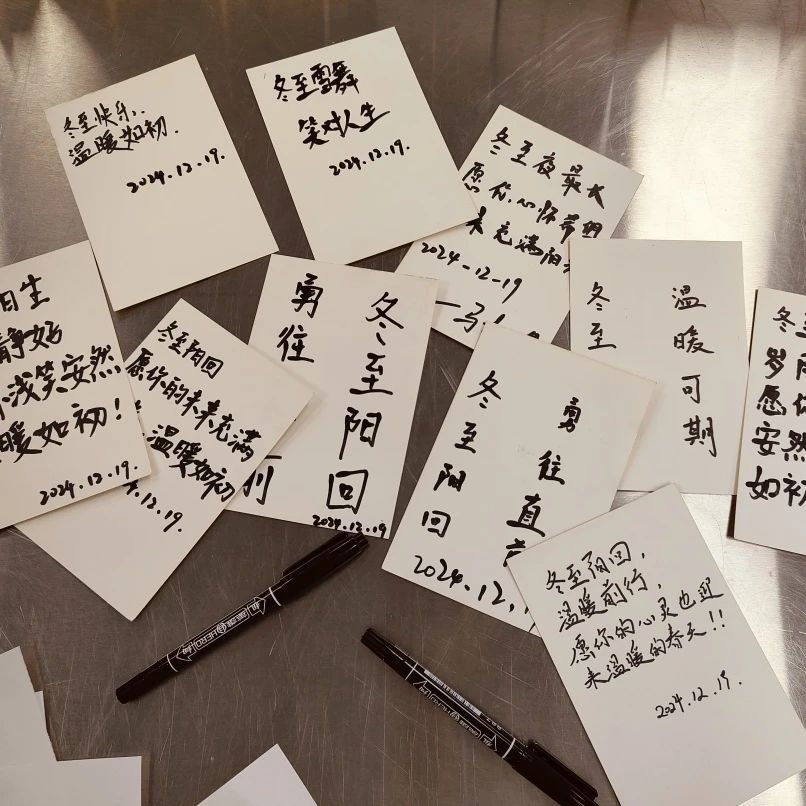 冬至快乐.
温暖如初.
2024.12.19.
冬至雪舞
笑对人生
2024.12.19.
冬至夜最长
愿你心怀希望
未充满阳
2024-12-19
日生
静好
浅笑安然
暖如初!
2024.12.19.
冬至阳回
愿你的未来充满
温暖如初
12.19.
冬至阳回
勇往
前
2024.12.19
勇往直前
冬至阳回
2024.12.1
温暖可期
冬至
冬至
岁月
愿你
安然
如初
冬至阳回,
温暖前行,
愿你的心灵也迎
来温暖的春天!!
2024.12.19.
HERO